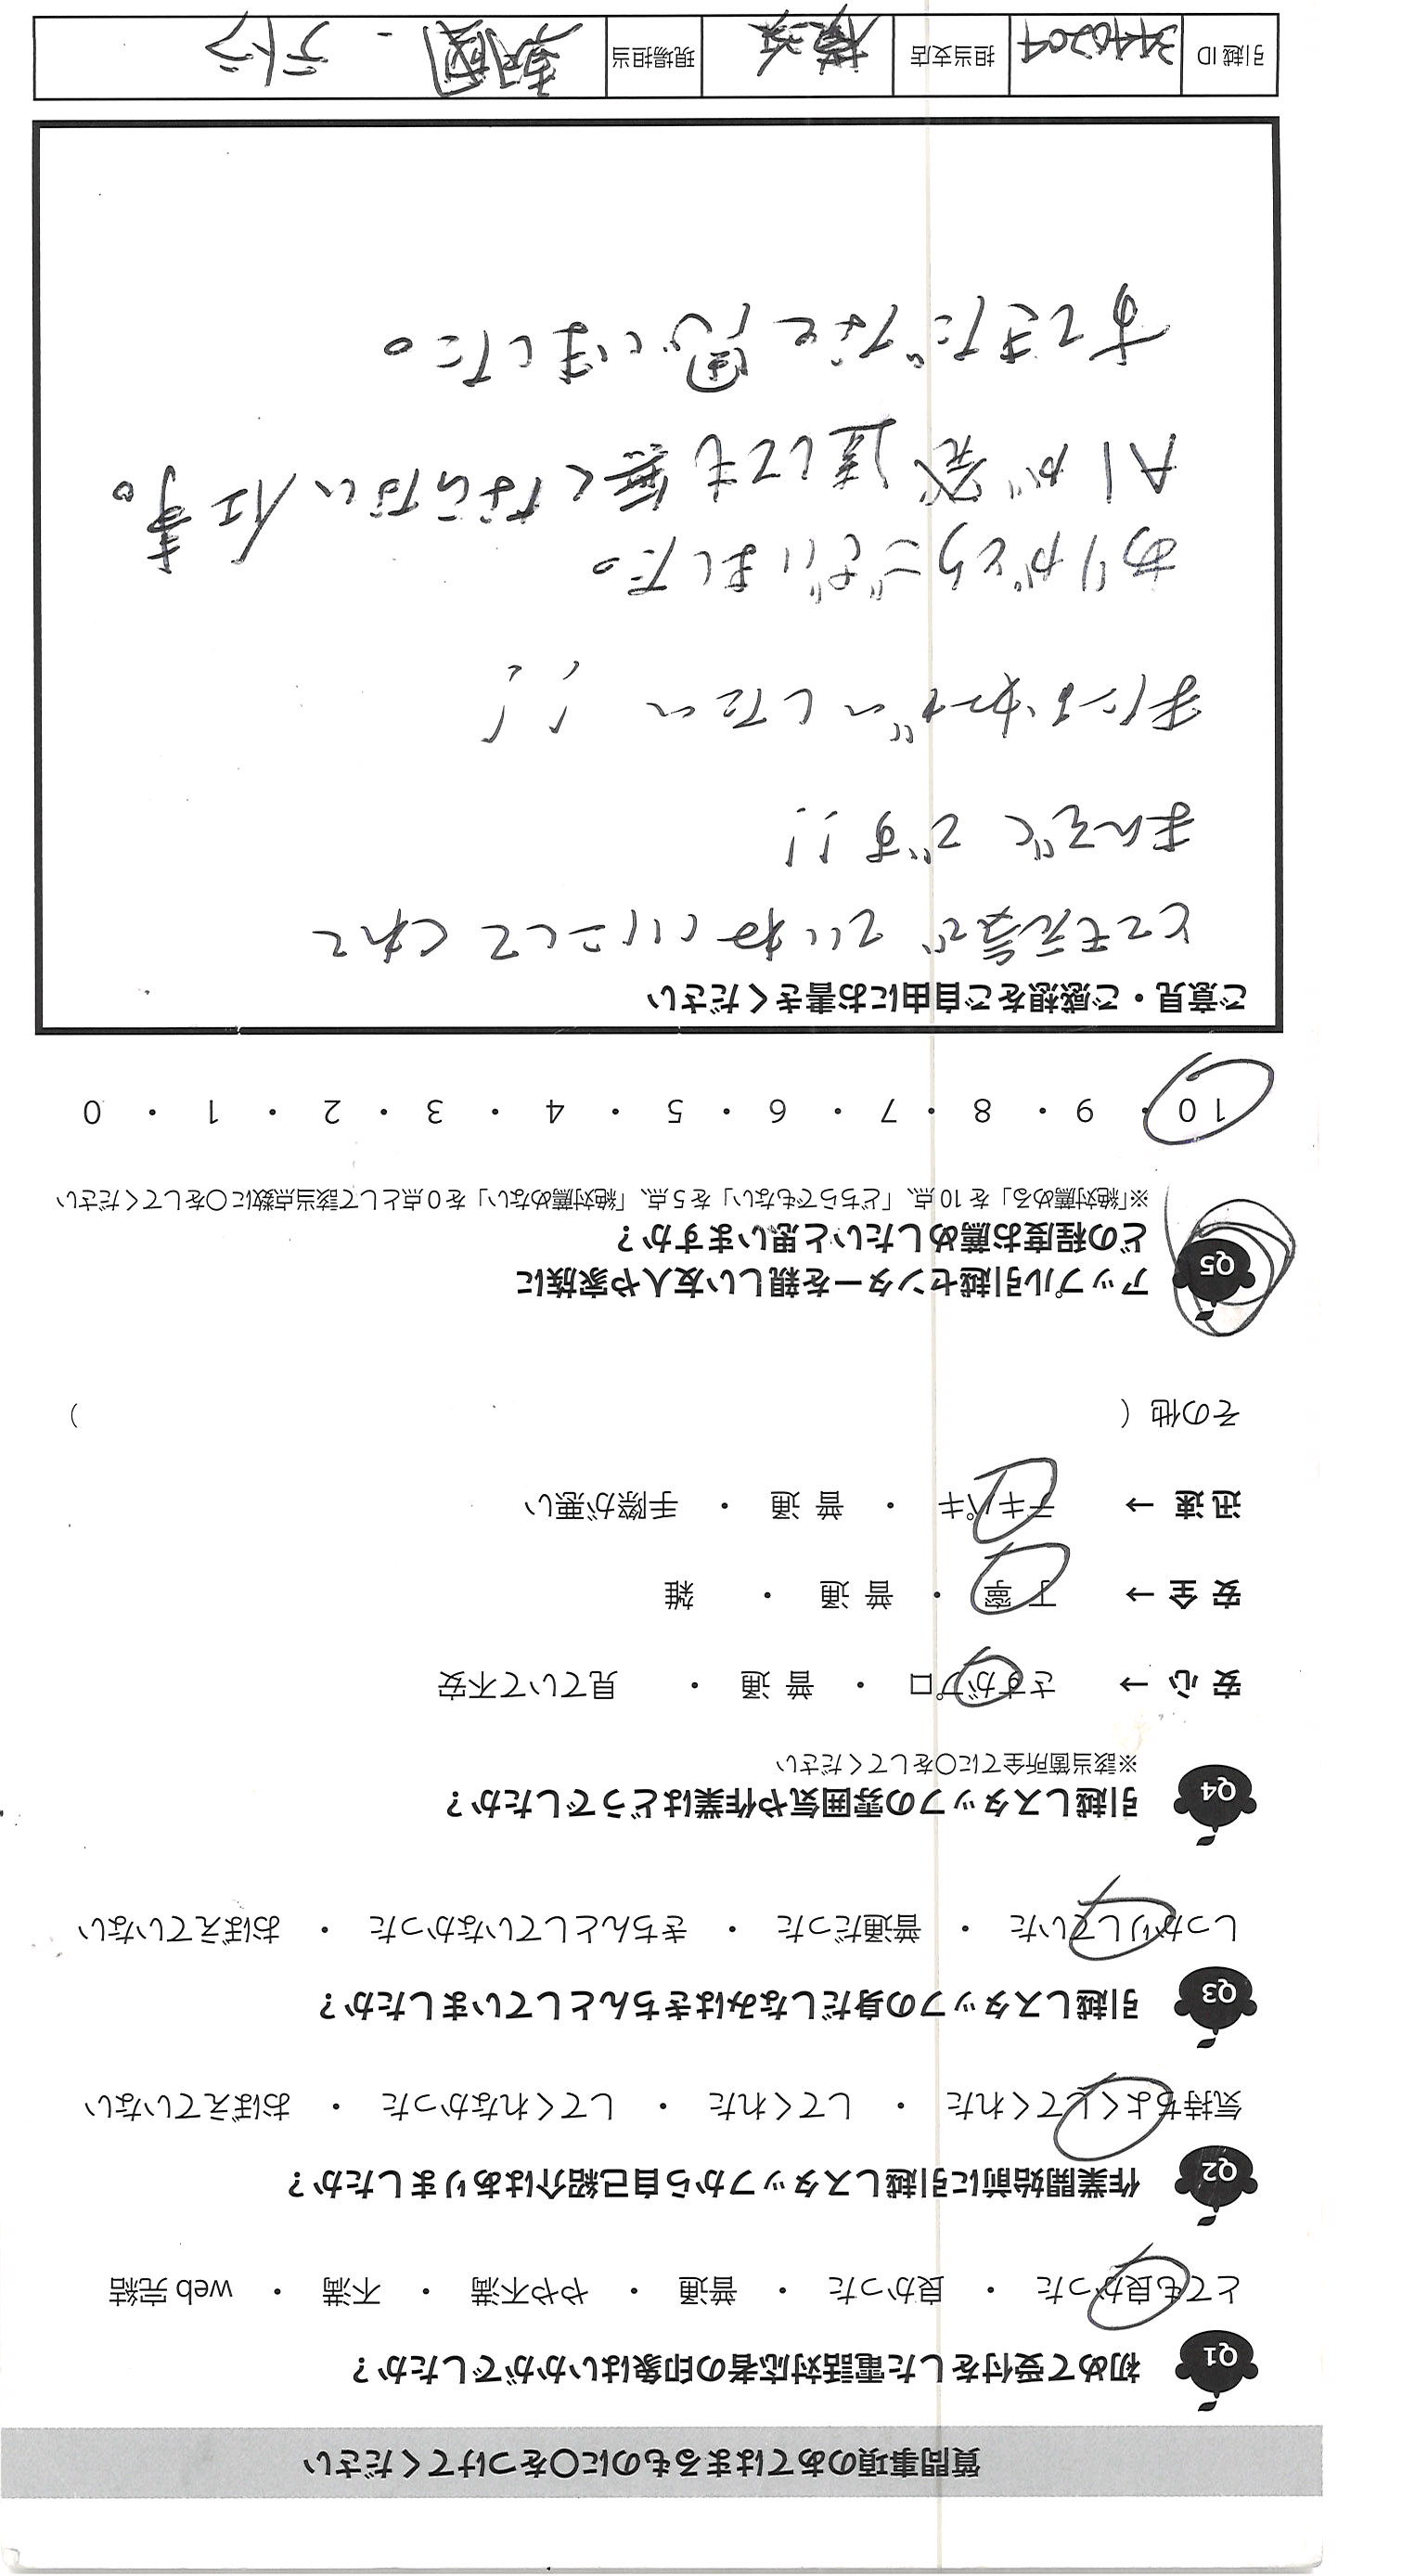 質問事項のあてはまるものに〇をつけてください
Q1 初めて受付をした電話対応者の印象はいかがでしたか？
とても良かった ・ 良かった ・ 普通 ・ やや不満 ・ 不満 ・ web 完結
Q2 作業開始前に引越しスタッフから自己紹介はありましたか？
気持ちよくしてくれた ・ してくれた ・ してくれなかった ・ おぼえていない
Q3 引越しスタッフの身だしなみはきちんとしていましたか？
しっかりしていた ・ 普通だった ・ きちんとしていなかった ・ おぼえていない
Q4 引越しスタッフの雰囲気や作業はどうでしたか？
※該当箇所全てに〇をしてください
安 心 → さすがプロ ・ 普 通 ・ 見ていて不安
安 全 → 丁 寧 ・ 普 通 ・ 雑
迅 速 → テキパキ ・ 普 通 ・ 手際が悪い
その他（ ）
Q5 アップル引越センターを親しい友人や家族に
どの程度お薦めしたいと思いますか？
※「絶対薦める」を 10 点、「どちらでもない」を 5 点、「絶対薦めない」を 0 点として該当点数に〇をしてください
10 ・ 9 ・ 8 ・ 7 ・ 6 ・ 5 ・ 4 ・ 3 ・ 2 ・ 1 ・ 0
ご意見・ご感想をご自由にお書きください
とても元気で ていねいにしてくれて
まんぞくです!!
またおねがいしたい !!
ありがとうございました。
AIが発達しても無くならない仕事。
すてきだなと思いました。
引越 ID 3440204 担当支店 横浜 現場担当 テトラ